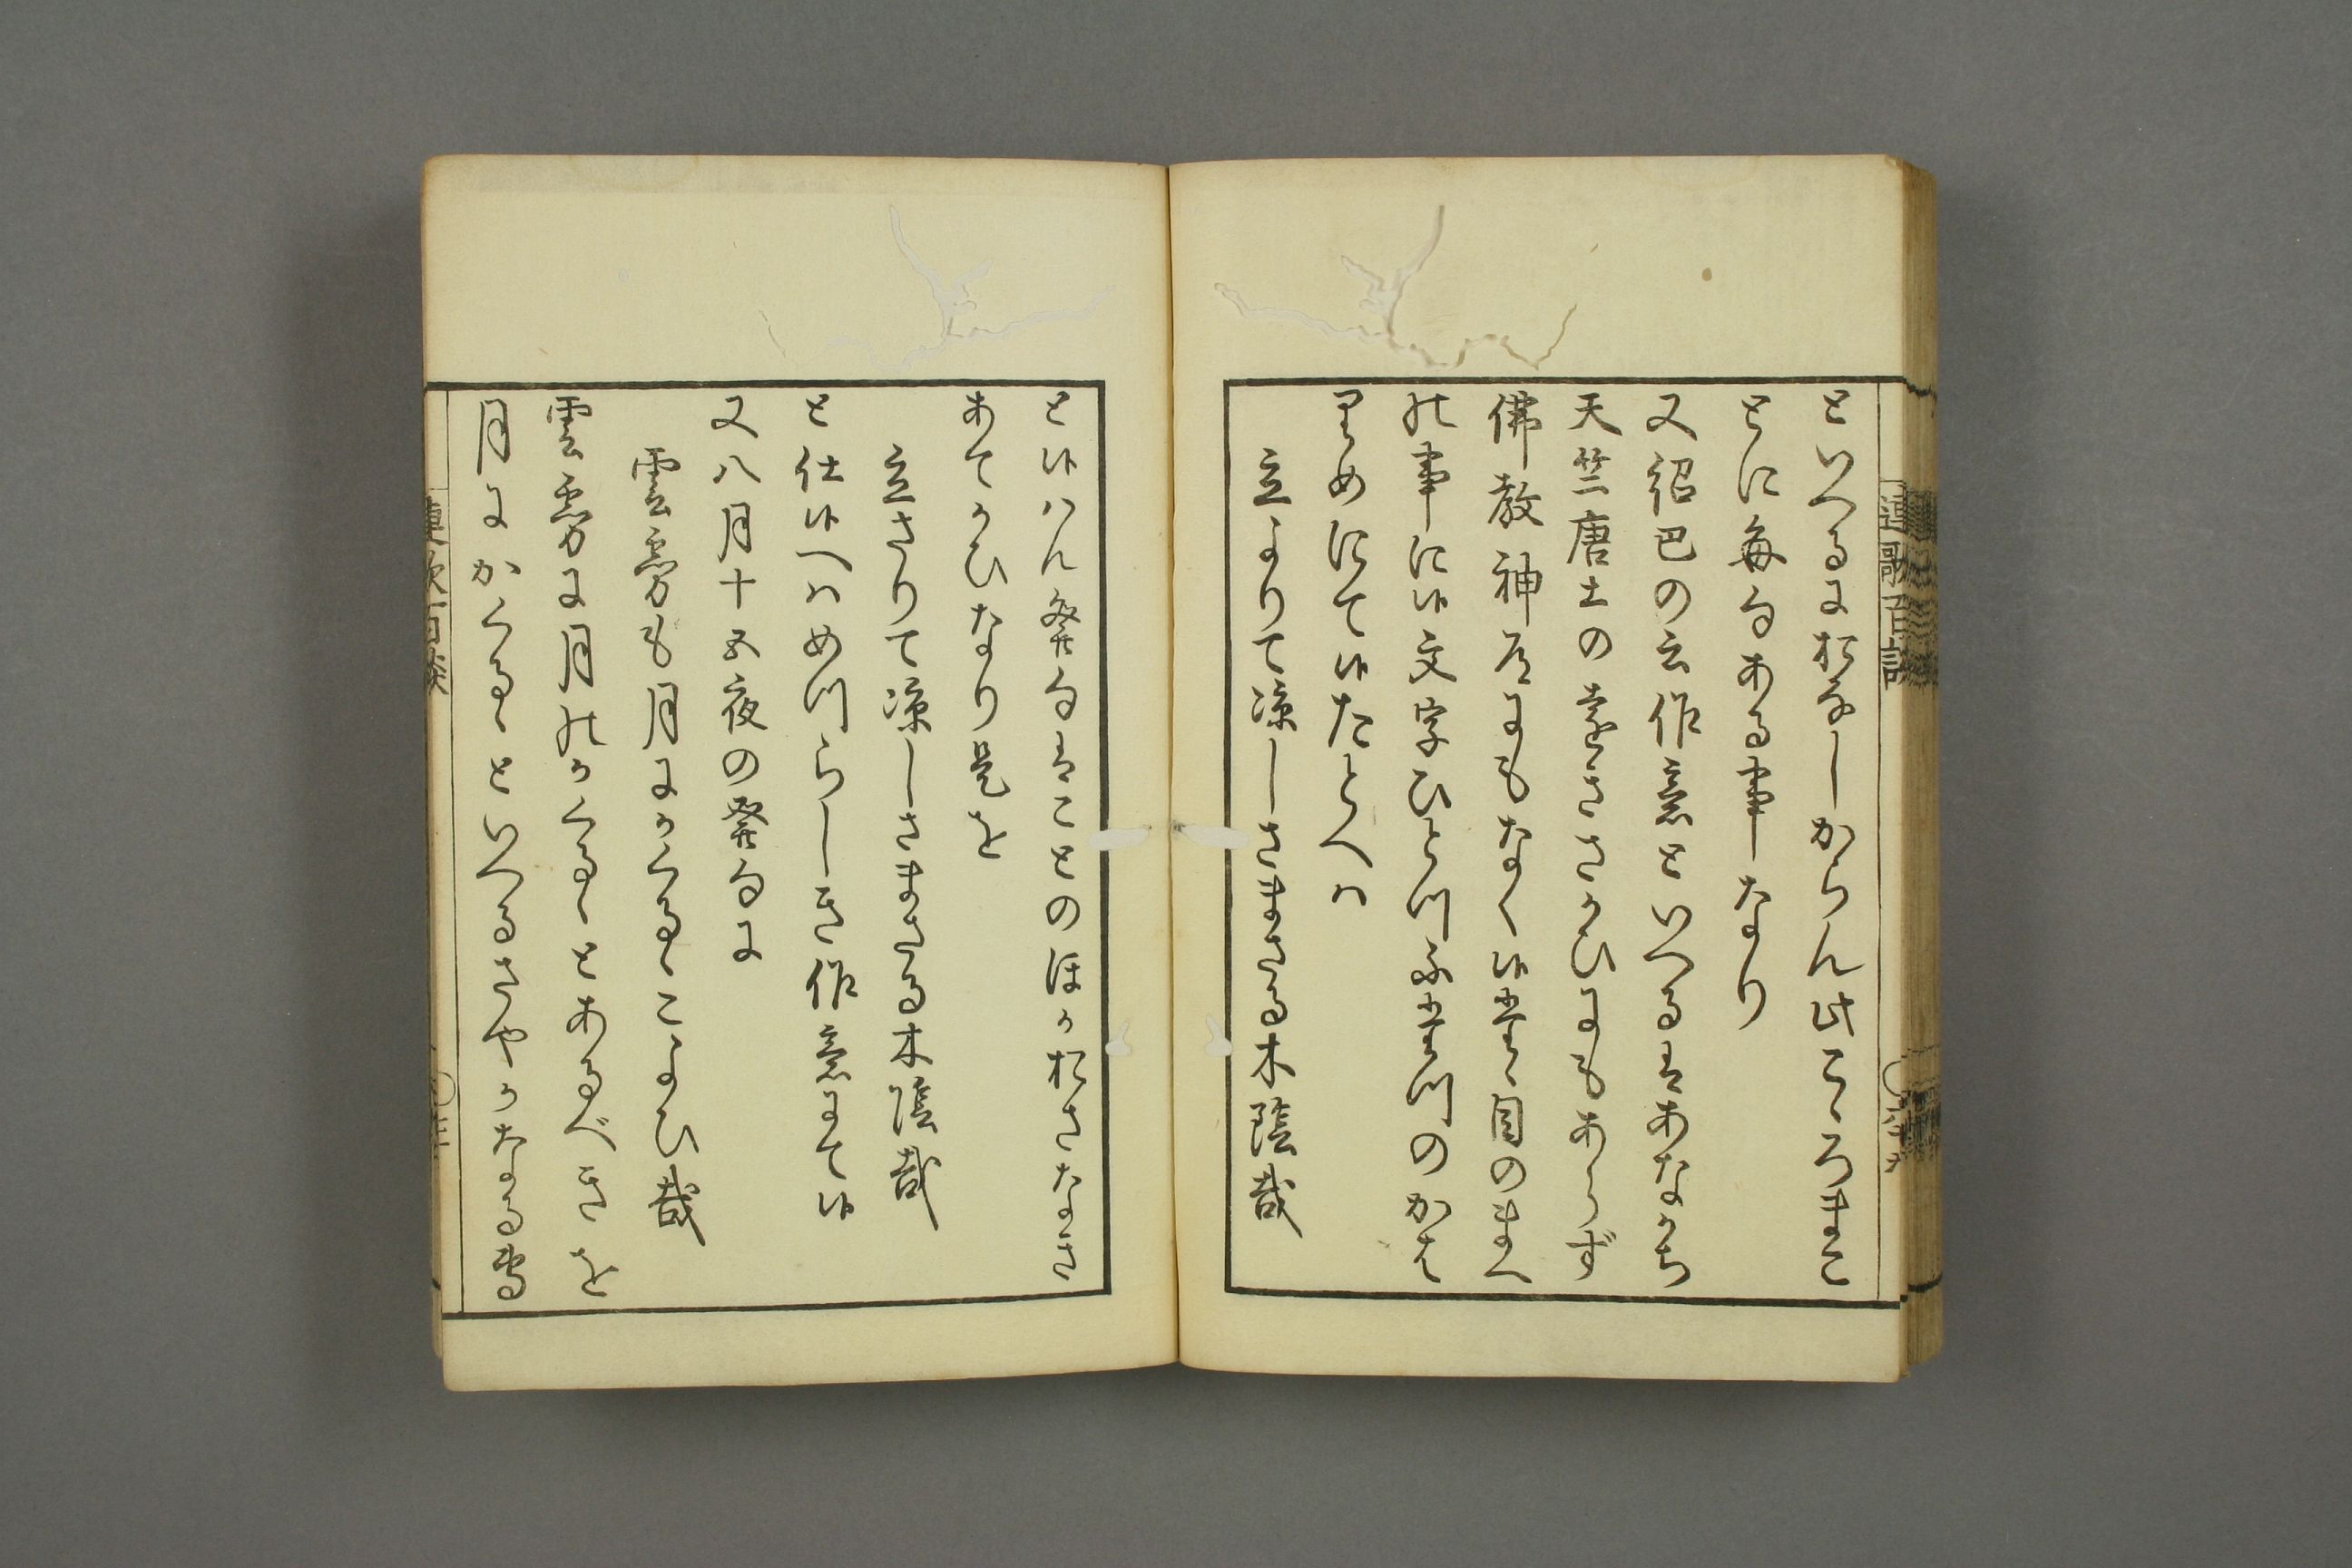 といへるにおなしからん此こゝろまこ
とに毎句ある事なり
又紹巴の云作意といへるはあなかち
天竺唐土の遠きさかひにもあらず
佛教神道にもなく候たゝ目のまへ
の事に候文字ひとつふたつのかは
りめにて候たとへハ
立よりて涼しさまさる木陰哉
と候ハん発句はことのほかおさなき
あてかひなり是を
立さりて涼しさまさる木陰哉
と仕候へハめつらしき作意にて候
又八月十五夜の発句に
雲霧も月にかくるゝこよひ哉
雲霧に月のかくるゝとあるべきを
月にかくるゝといへるさやかなる事
連歌百談